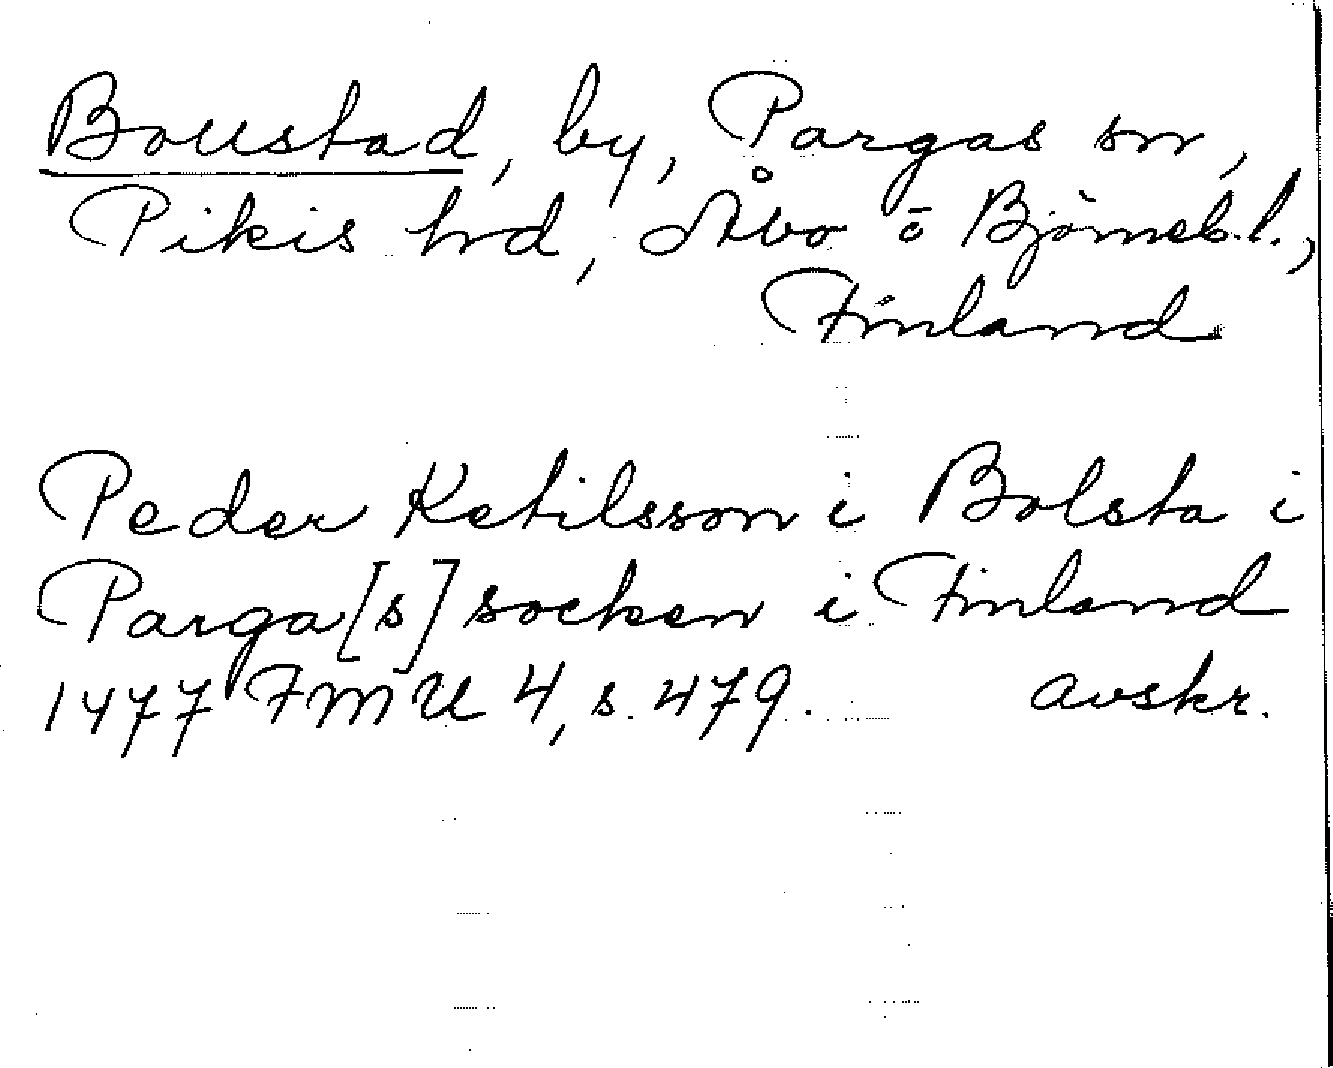 Boustad, by, Pargas sn,
Pikis hrd, Åbo o Björneb.l.,
Finland
Peder Ketilsson i Bolsta i
Parga[s] socken i Finland
1477 FMU 4, s. 479. avskr.